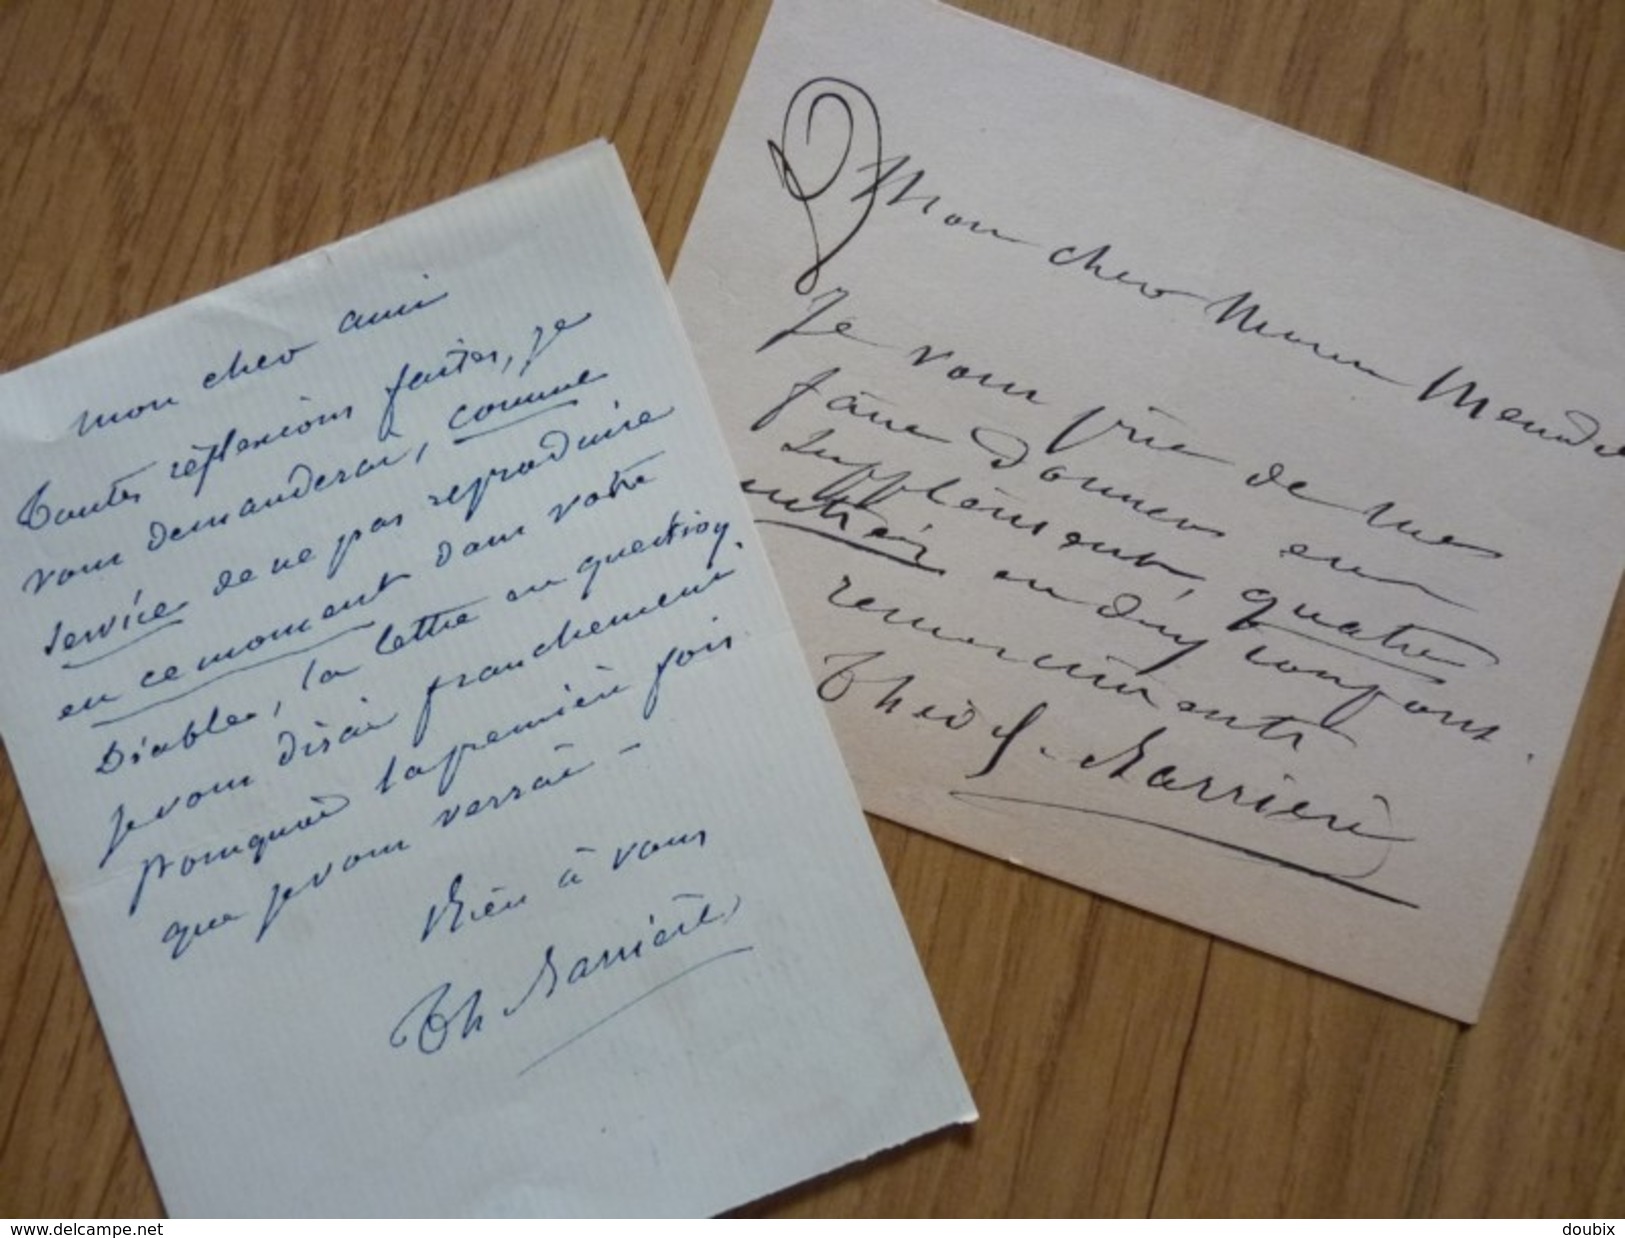 mon cher ami
Toutes réflexions faites, je
vous demanderai, comme
service de ne pas reproduire
en ce moment dans votre
Diable, la lettre en question.
Je vous dirai franchement
pourquoi la première fois
que je vous verrai –
Bien à vous
Th Barrière
Mon cher Mendès
Je vous prie de me
faire donner en
supplément, quatre
remerciements
Théod. Barrière
www.delcampe.net
doubix